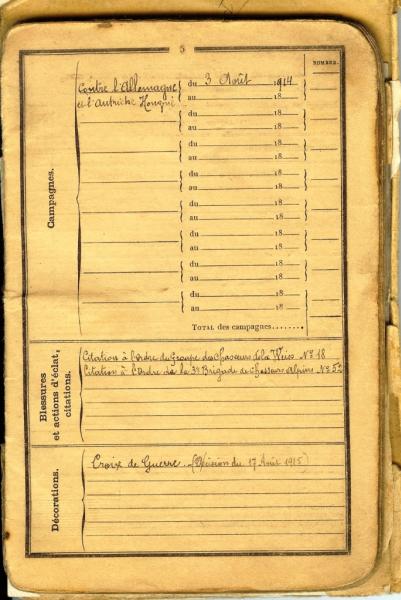 5
NOMBRE.
Campagnes.
Contre l'Allemagne du 3 Août 1914
et l'Autriche Hongrie au 18
du 18
au 18
du 18
au 18
du 18
au 18
du 18
au 18
du 18
au 18
du 18
au 18
du 18
au 18
TOTAL des campagnes.......
Blessures et actions d'éclat, citations.
Citation à l'ordre du Groupe des Chasseurs de la Weiss No 18
Citation à l'Ordre de la 3e Brigade de Chasseurs Alpins No
Décorations.
Croix de Guerre. (Décision du 17 Août 1915)